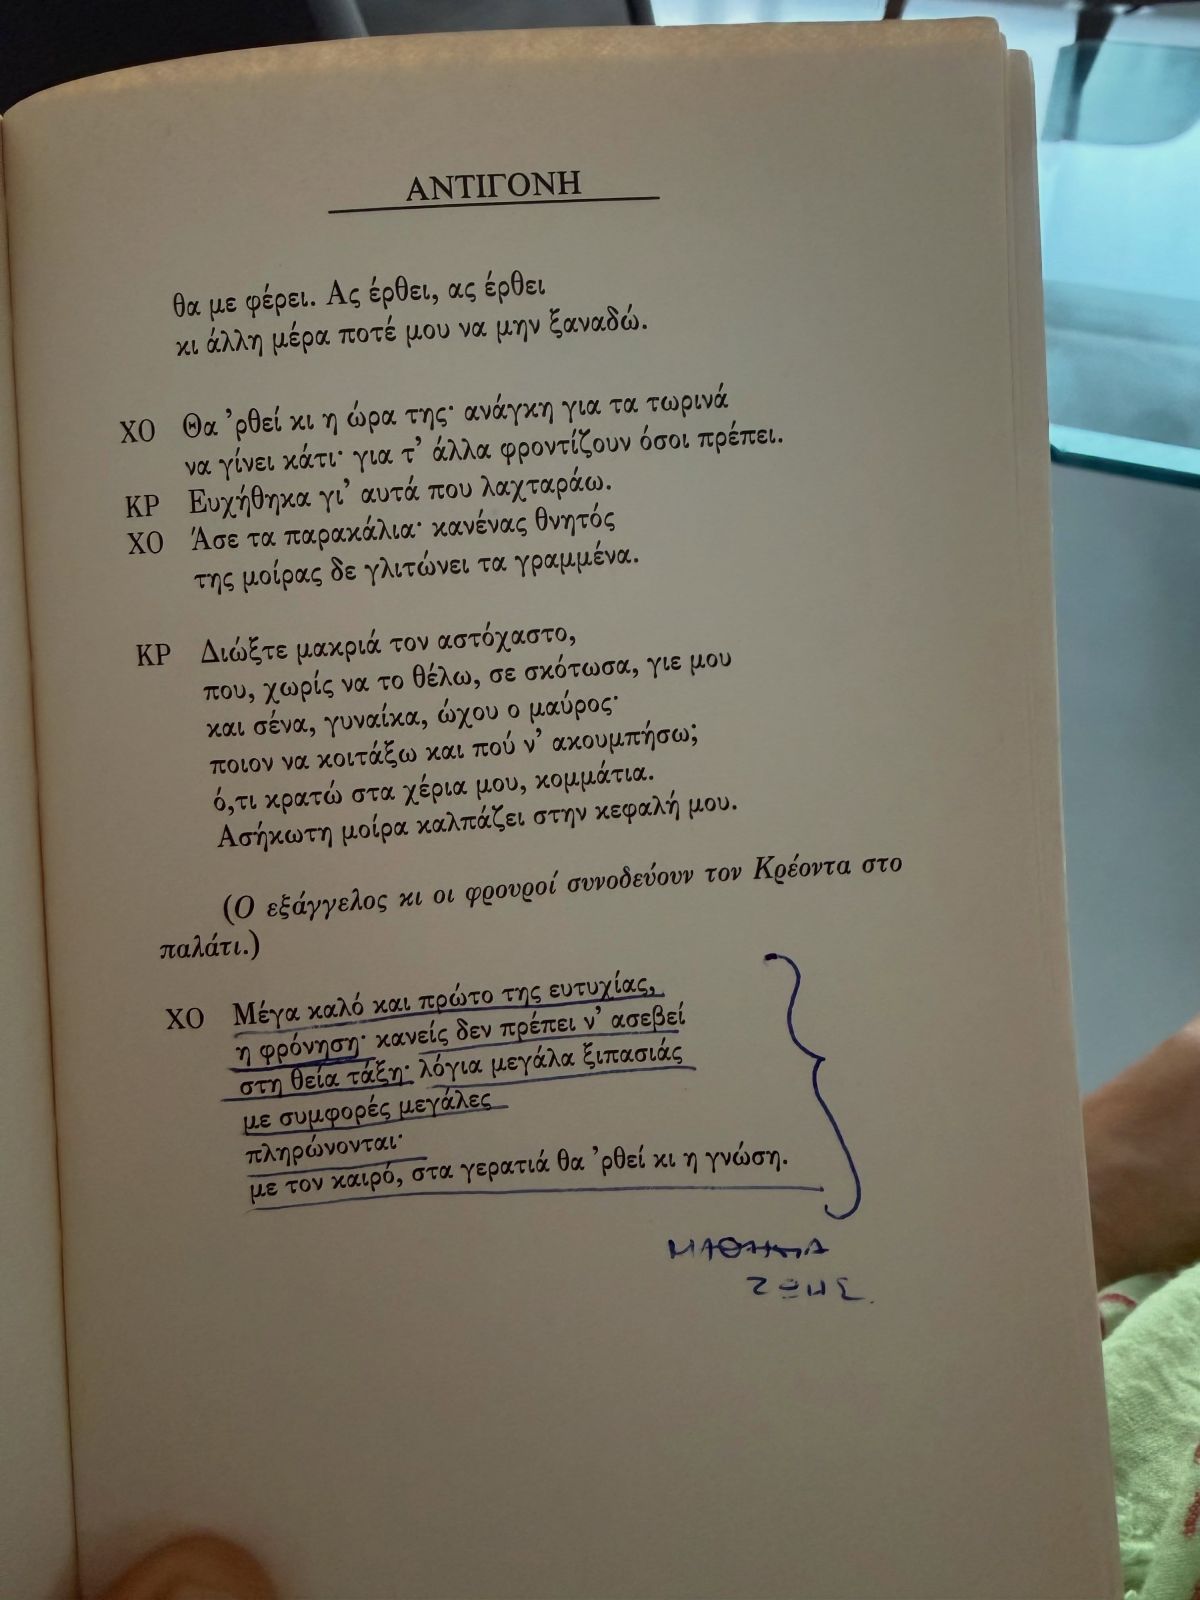 ΑΝΤΙΓΟΝΗ
θα με φέρει. Ας έρθει, ας έρθει
κι άλλη μέρα ποτέ μου να μην ξαναδώ.
ΧΟ Θα 'ρθεί κι η ώρα της· ανάγκη για τα τωρινά
να γίνει κάτι· για τ' άλλα φροντίζουν όσοι πρέπει.
ΚΡ Ευχήθηκα γι' αυτά που λαχταράω.
ΧΟ Άσε τα παρακάλια· κανένας θνητός
της μοίρας δε γλιτώνει τα γραμμένα.
ΚΡ Διώξτε μακριά τον αστόχαστο,
που, χωρίς να το θέλω, σε σκότωσα, γιε μου
και σένα, γυναίκα, ώχου ο μαύρος·
ποιον να κοιτάξω και πού ν' ακουμπήσω;
ό,τι κρατώ στα χέρια μου, κομμάτια.
Ασήκωτη μοίρα καλπάζει στην κεφαλή μου.
(Ο εξάγγελος κι οι φρουροί συνοδεύουν τον Κρέοντα στο
παλάτι.)
ΧΟ Μέγα καλό και πρώτο της ευτυχίας,
η φρόνηση· κανείς δεν πρέπει ν' ασεβεί
στη θεία τάξη· λόγια μεγάλα ξιπασιάς
με συμφορές μεγάλες
πληρώνονται·
με τον καιρό, στα γερατιά θα 'ρθεί κι η γνώση.
ΜΑΘΗΜΑ
ΖΩΗΣ.